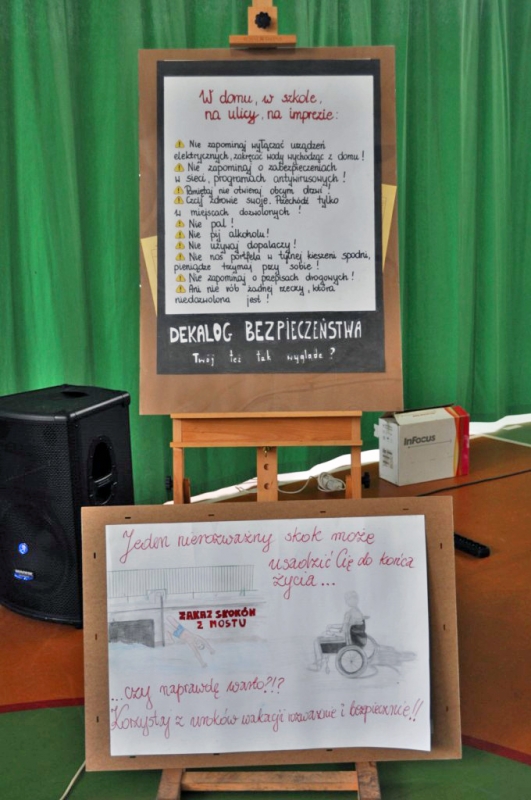 W domu, w szkole,
na ulicy, na imprezie:
Nie zapominaj wyłączać urządzeń
elektrycznych, zakręcać wody wychodząc z domu!
Nie zapominaj o zabezpieczeniach
w sieci, programach antywirusowych!
Pamiętaj nie otwieraj obcym drzwi!
Czcij zdrowie swoje. Przechodź tylko
w miejscach dozwolonych!
Nie pal!
Nie pij alkoholu!
Nie używaj dopalaczy!
Nie noś portfela w tylnej kieszeni spodni,
pieniądze trzymaj przy sobie!
Nie zapominaj o przepisach drogowych!
Ani nie rób żadnej rzeczy, która
niedozwolona jest!
DEKALOG BEZPIECZEŃSTWA
Twój też tak wygląda?
InFocus
Jeden nierozważny skok może
usadzić Cię do końca
życia...
ZAKAZ SKOKÓW
Z MOSTU
...czy naprawdę warto?!?
Korzystaj z uroków wakacji rozważnie i bezpiecznie!!